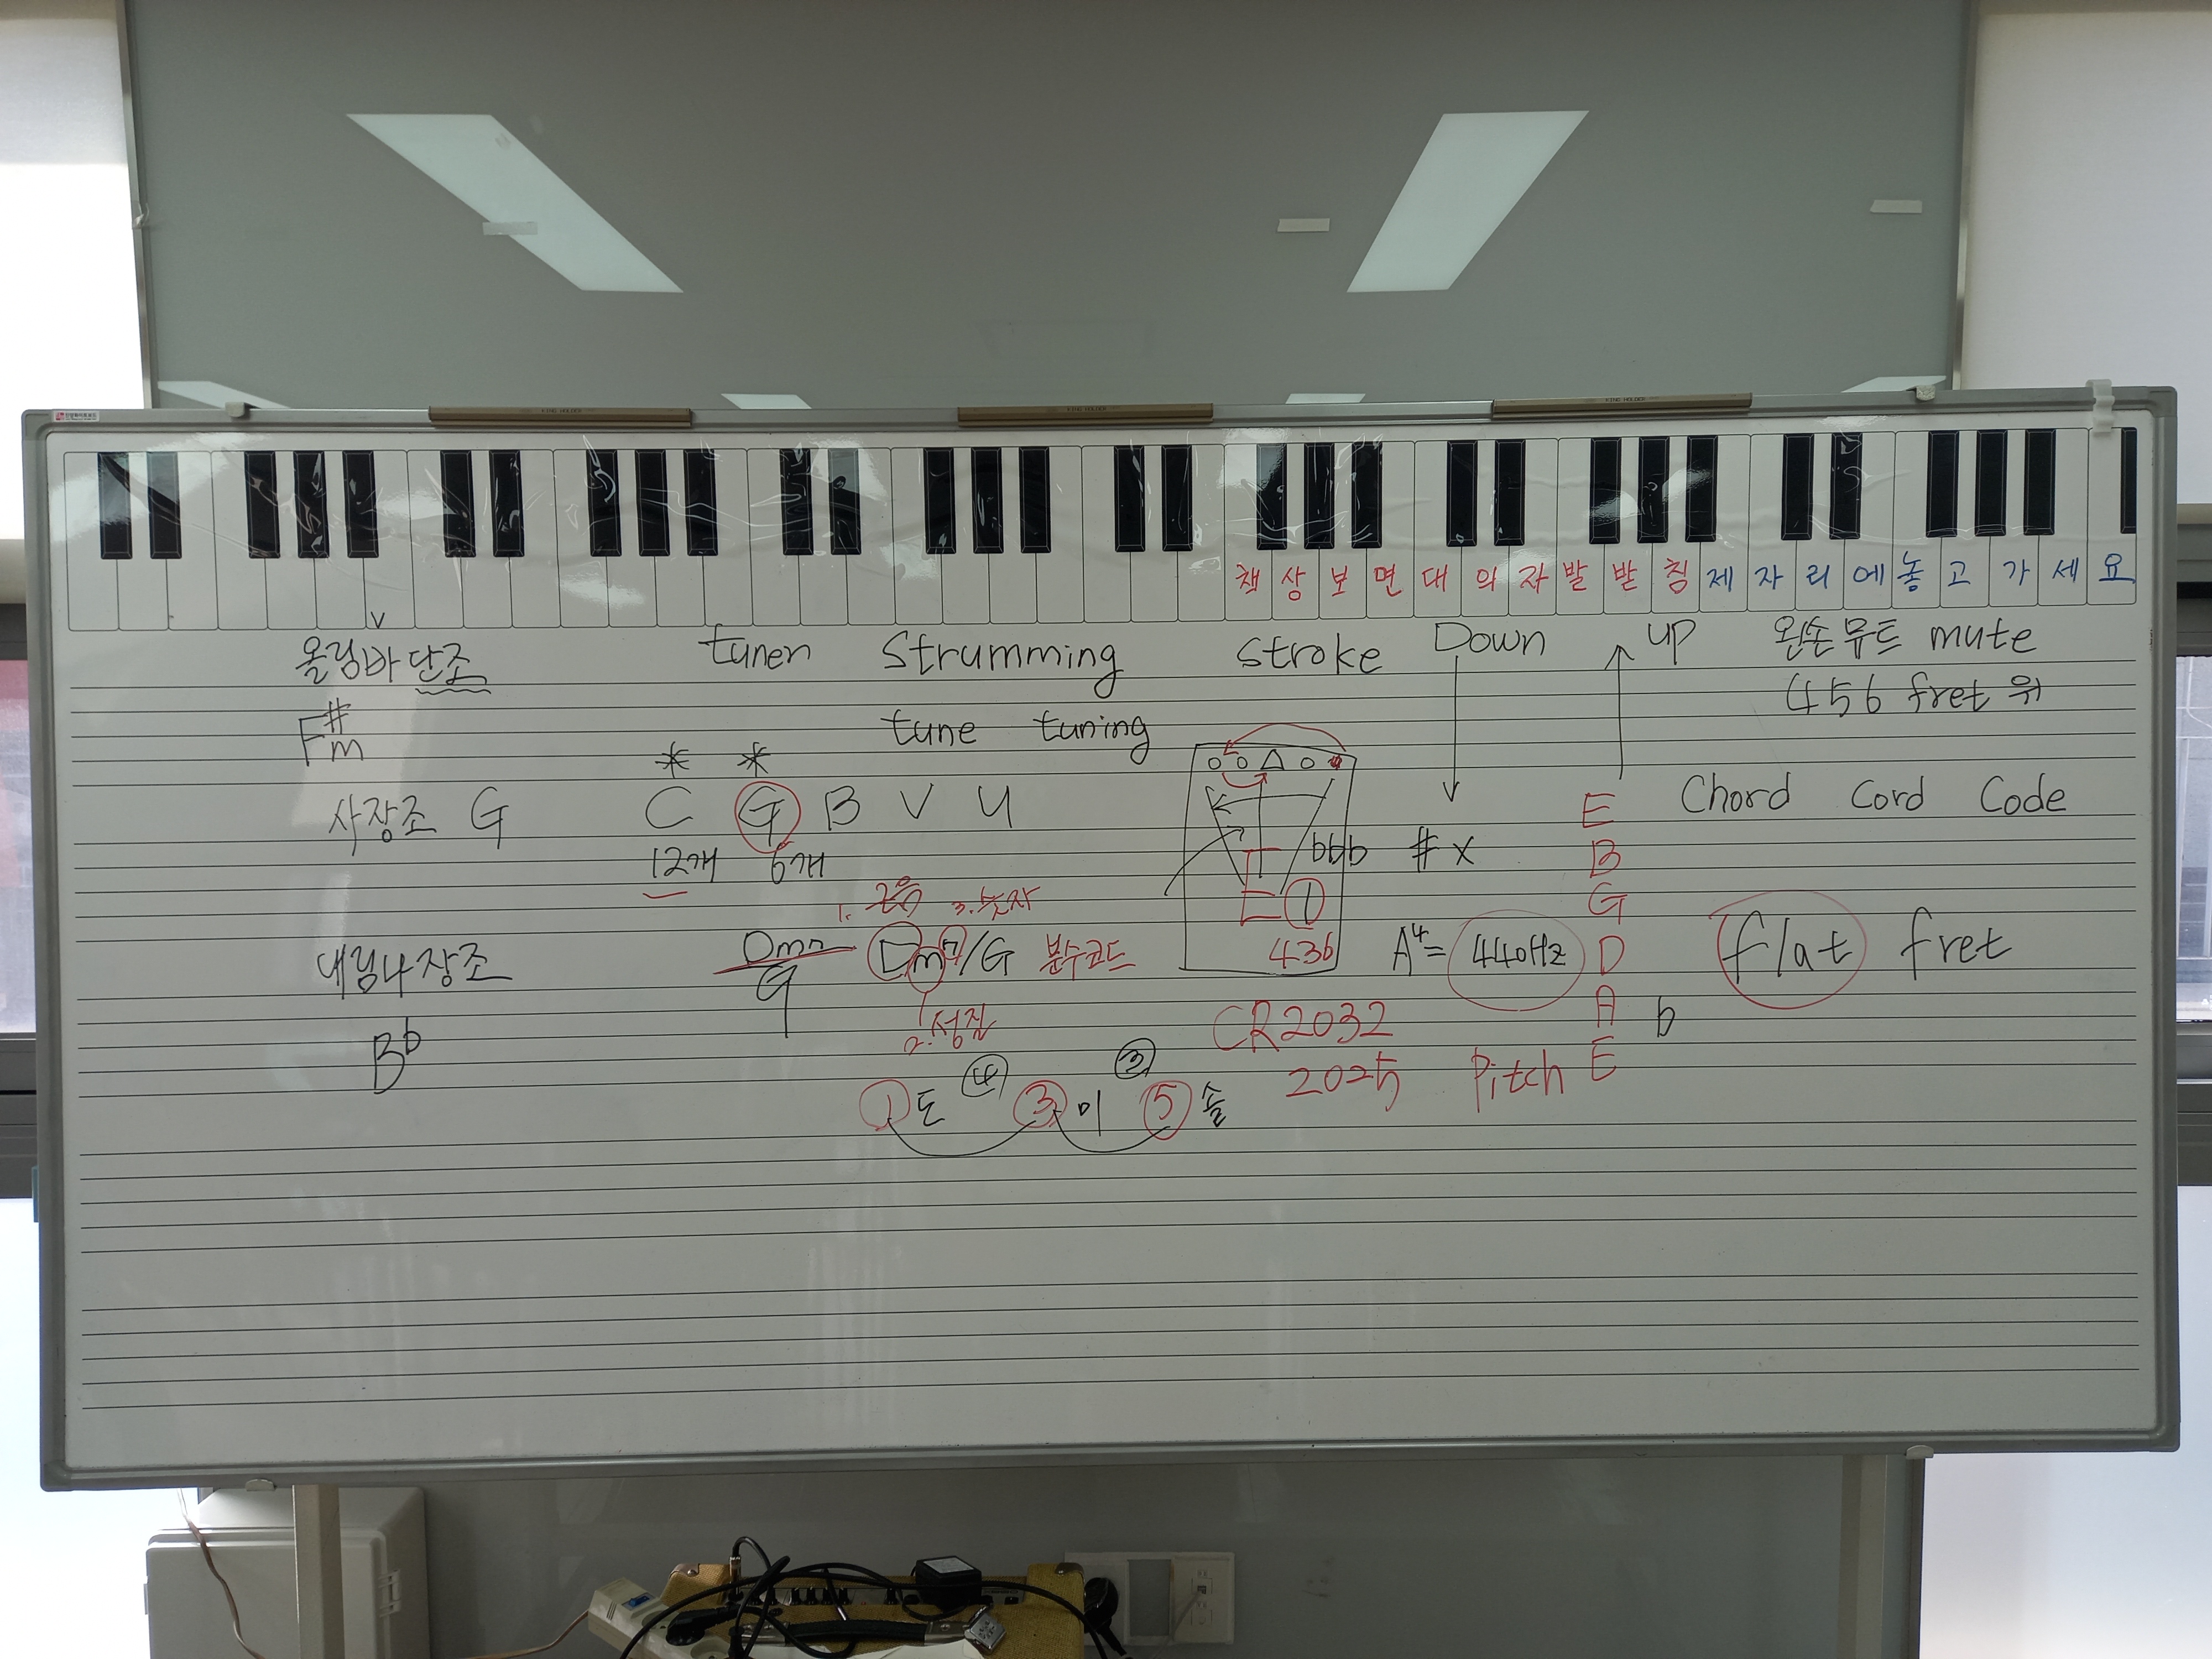 KING HOLDER KING HOLDER KING HOLDER
책상보면대의자발받침제자리에놓고가세요
올림바단조 tuner Strumming Stroke Down up 왼손뮤트 mute
456 fret 위
F#m tune tuning
* *
사장조 G C G B V U E Chord Cord Code
12개 6개 bbb # x B
1. 근음 3. 숫자 G
내림나장조 Dm7/G Dm7/G 분수코드 436 A4= 440Hz D flat fret
2. 성질 CR2032 A b
Bb 2025 Pitch E
④ ③
① 도 ③ 미 ⑤ 솔